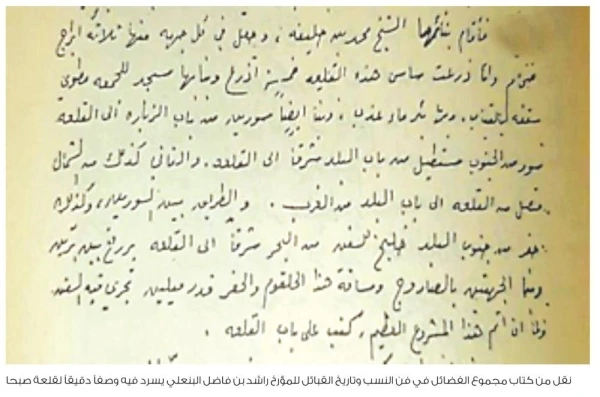 فأقام بنائها الشيخ محمد بن خليفه، وجعل في كل جهه منها ثلاثة ابراج
وانا ذرعت ساس هذه القلعه خمسة أذرع وبنا بها مسجد للجمعه مطوي
سقفه وبها بئر ماء عذب، وبنا ايضاً سورين من باب الزباره الى القلعه
سور من الجنوب مستطيل من باب البلد مشرقاً الى القلعه. والثاني كذلك من الشمال
متصل من القلعه الى باب البلد من الغرب. والطريق بين السورين، وكذلك
حفر من جنوب البلد خليج للسفن من البحر مشرقاً الى القلعه
وبنا الجهتين بالصاروج ومسافة هذا الحلقوم والحفر قدر ميلين تجري فيه السفن
ولما ان اتم هذا المشروع العظيم، كتب على باب القلعه.
نقل من كتاب مجموع الفضائل في فن النسب وتاريخ القبائل للمؤرخ راشد بن فاضل البنعلي يسرد فيه وصفاً دقيقاً لقلعة صبحا